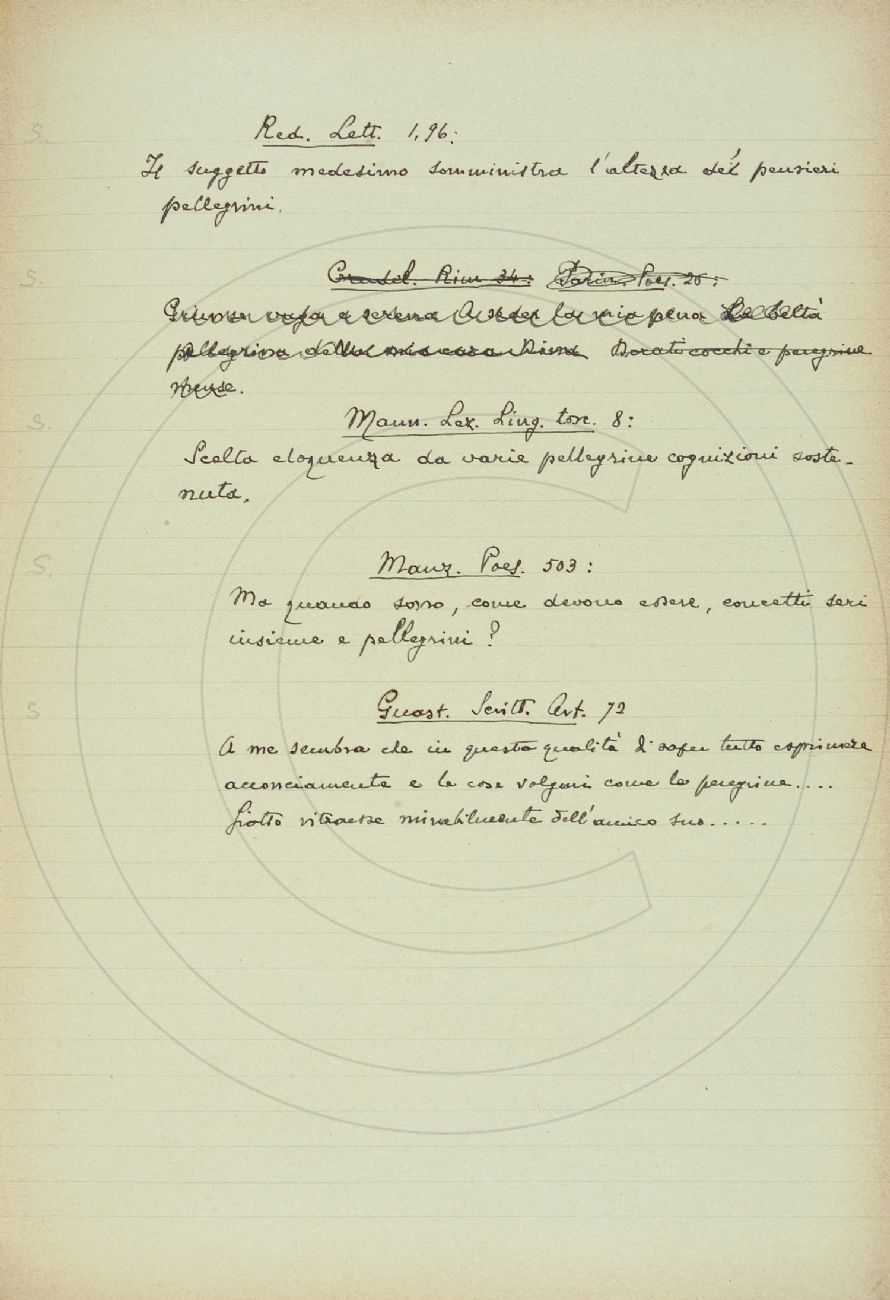 S. Red. Lett. 1, 96:
Il suggetto medesimo somministra l'altezza dei pensieri
pellegrini.
S. Crudel. Rim. 34: Parin. Poes. 26:
vaga e serena la mia pena La beltà
pellegrina della mia cara e peregrine
Muse.
S. Mann. Lez. Ling. tosc. 8:
Scelta eloquenza da varie pellegrine cognizioni soste-
nuta.
S. Manz. Poes. 503:
Ma quando sono, come devono essere, concetti seri
insieme e pellegrini?
S Guast. Scritt. Art. 72
A me sembra che in questa qualità di saper tutto esprimere
acconciamente e le cose volgari come le peregrine....
Giotto ritraesse mirabilmente dell'amico suo.....